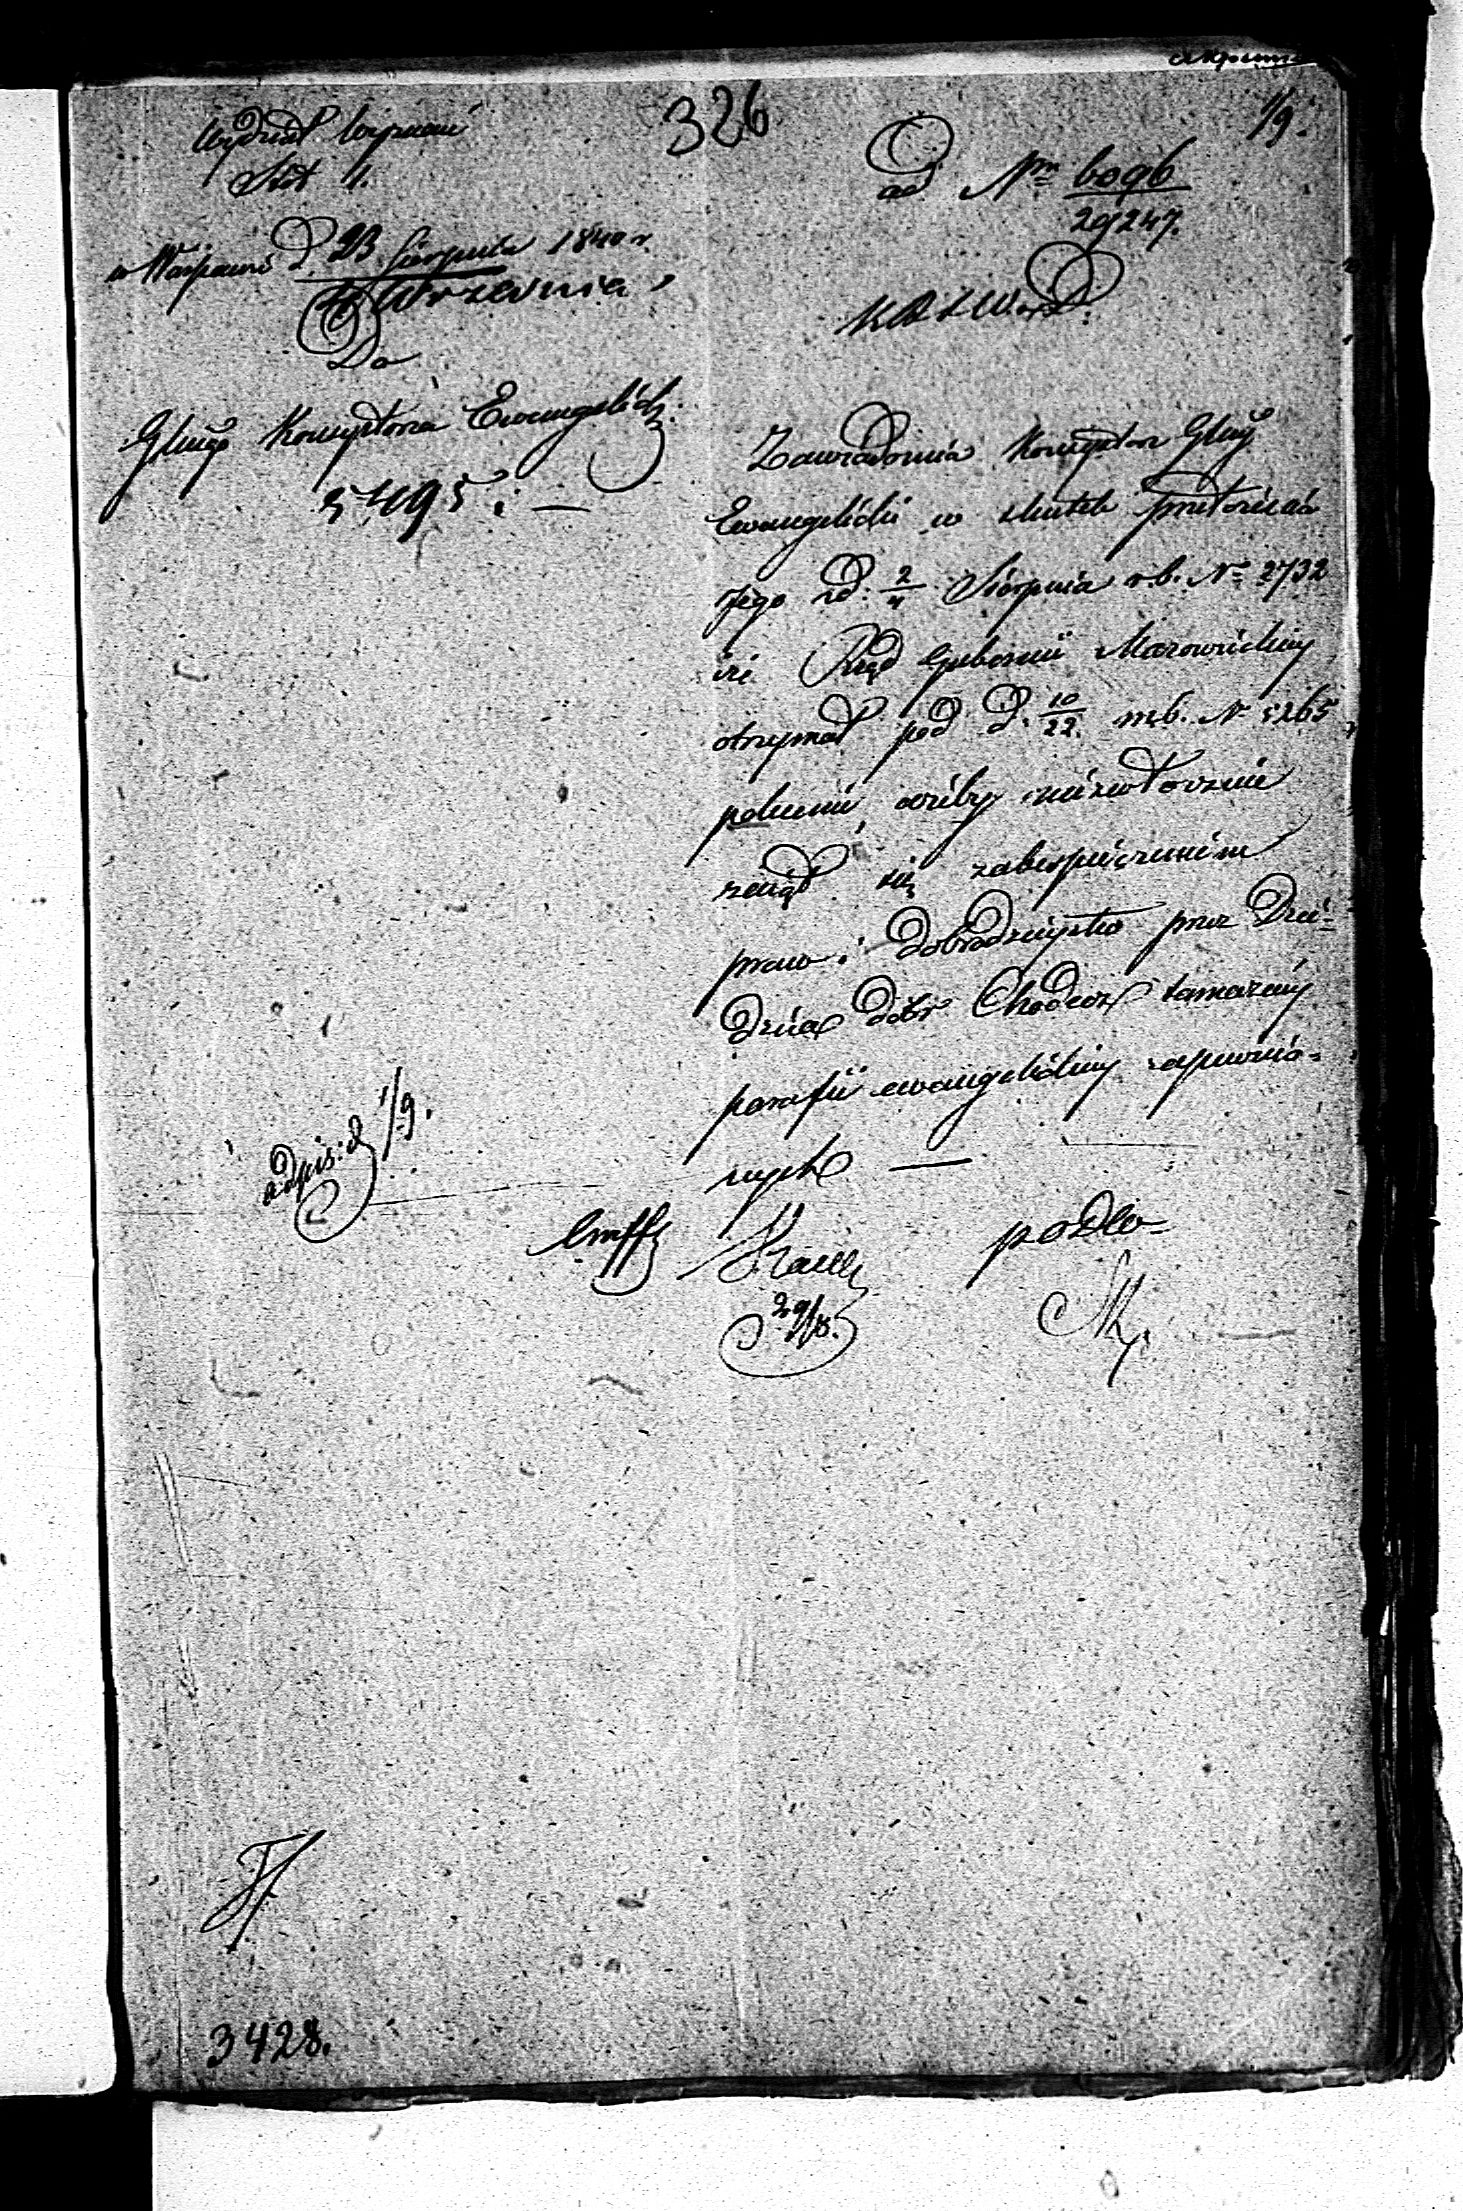 326
1/9.
Wydział Wyznań
Sekt 1.
w Warszawie d. 23 Sierpnia 1840 r.
Września
Do
Głueg Konsystorza Ewangelick.
5495. —
ad Nrm 6096
29247.
Zawiadomia Konsystorz Głuy
Ewangelicki w skutek przedstawień
Jego z d. 2/ Sierpnia r. b. No 2732
iż Rząd Gubernii Mazowieckiey
otrzymał pod d. 10/22 m. b. N 5265
polecenie, ażeby niezwłocznie
zaiął się zabezpieczeniem
praw i dobrodzieystw przez Dzie-
dzica dóbr Chodecz tameczney
parafii ewangelickiey zapewnio-
nych —
odpis: d 1/9.
29/8.
3428.